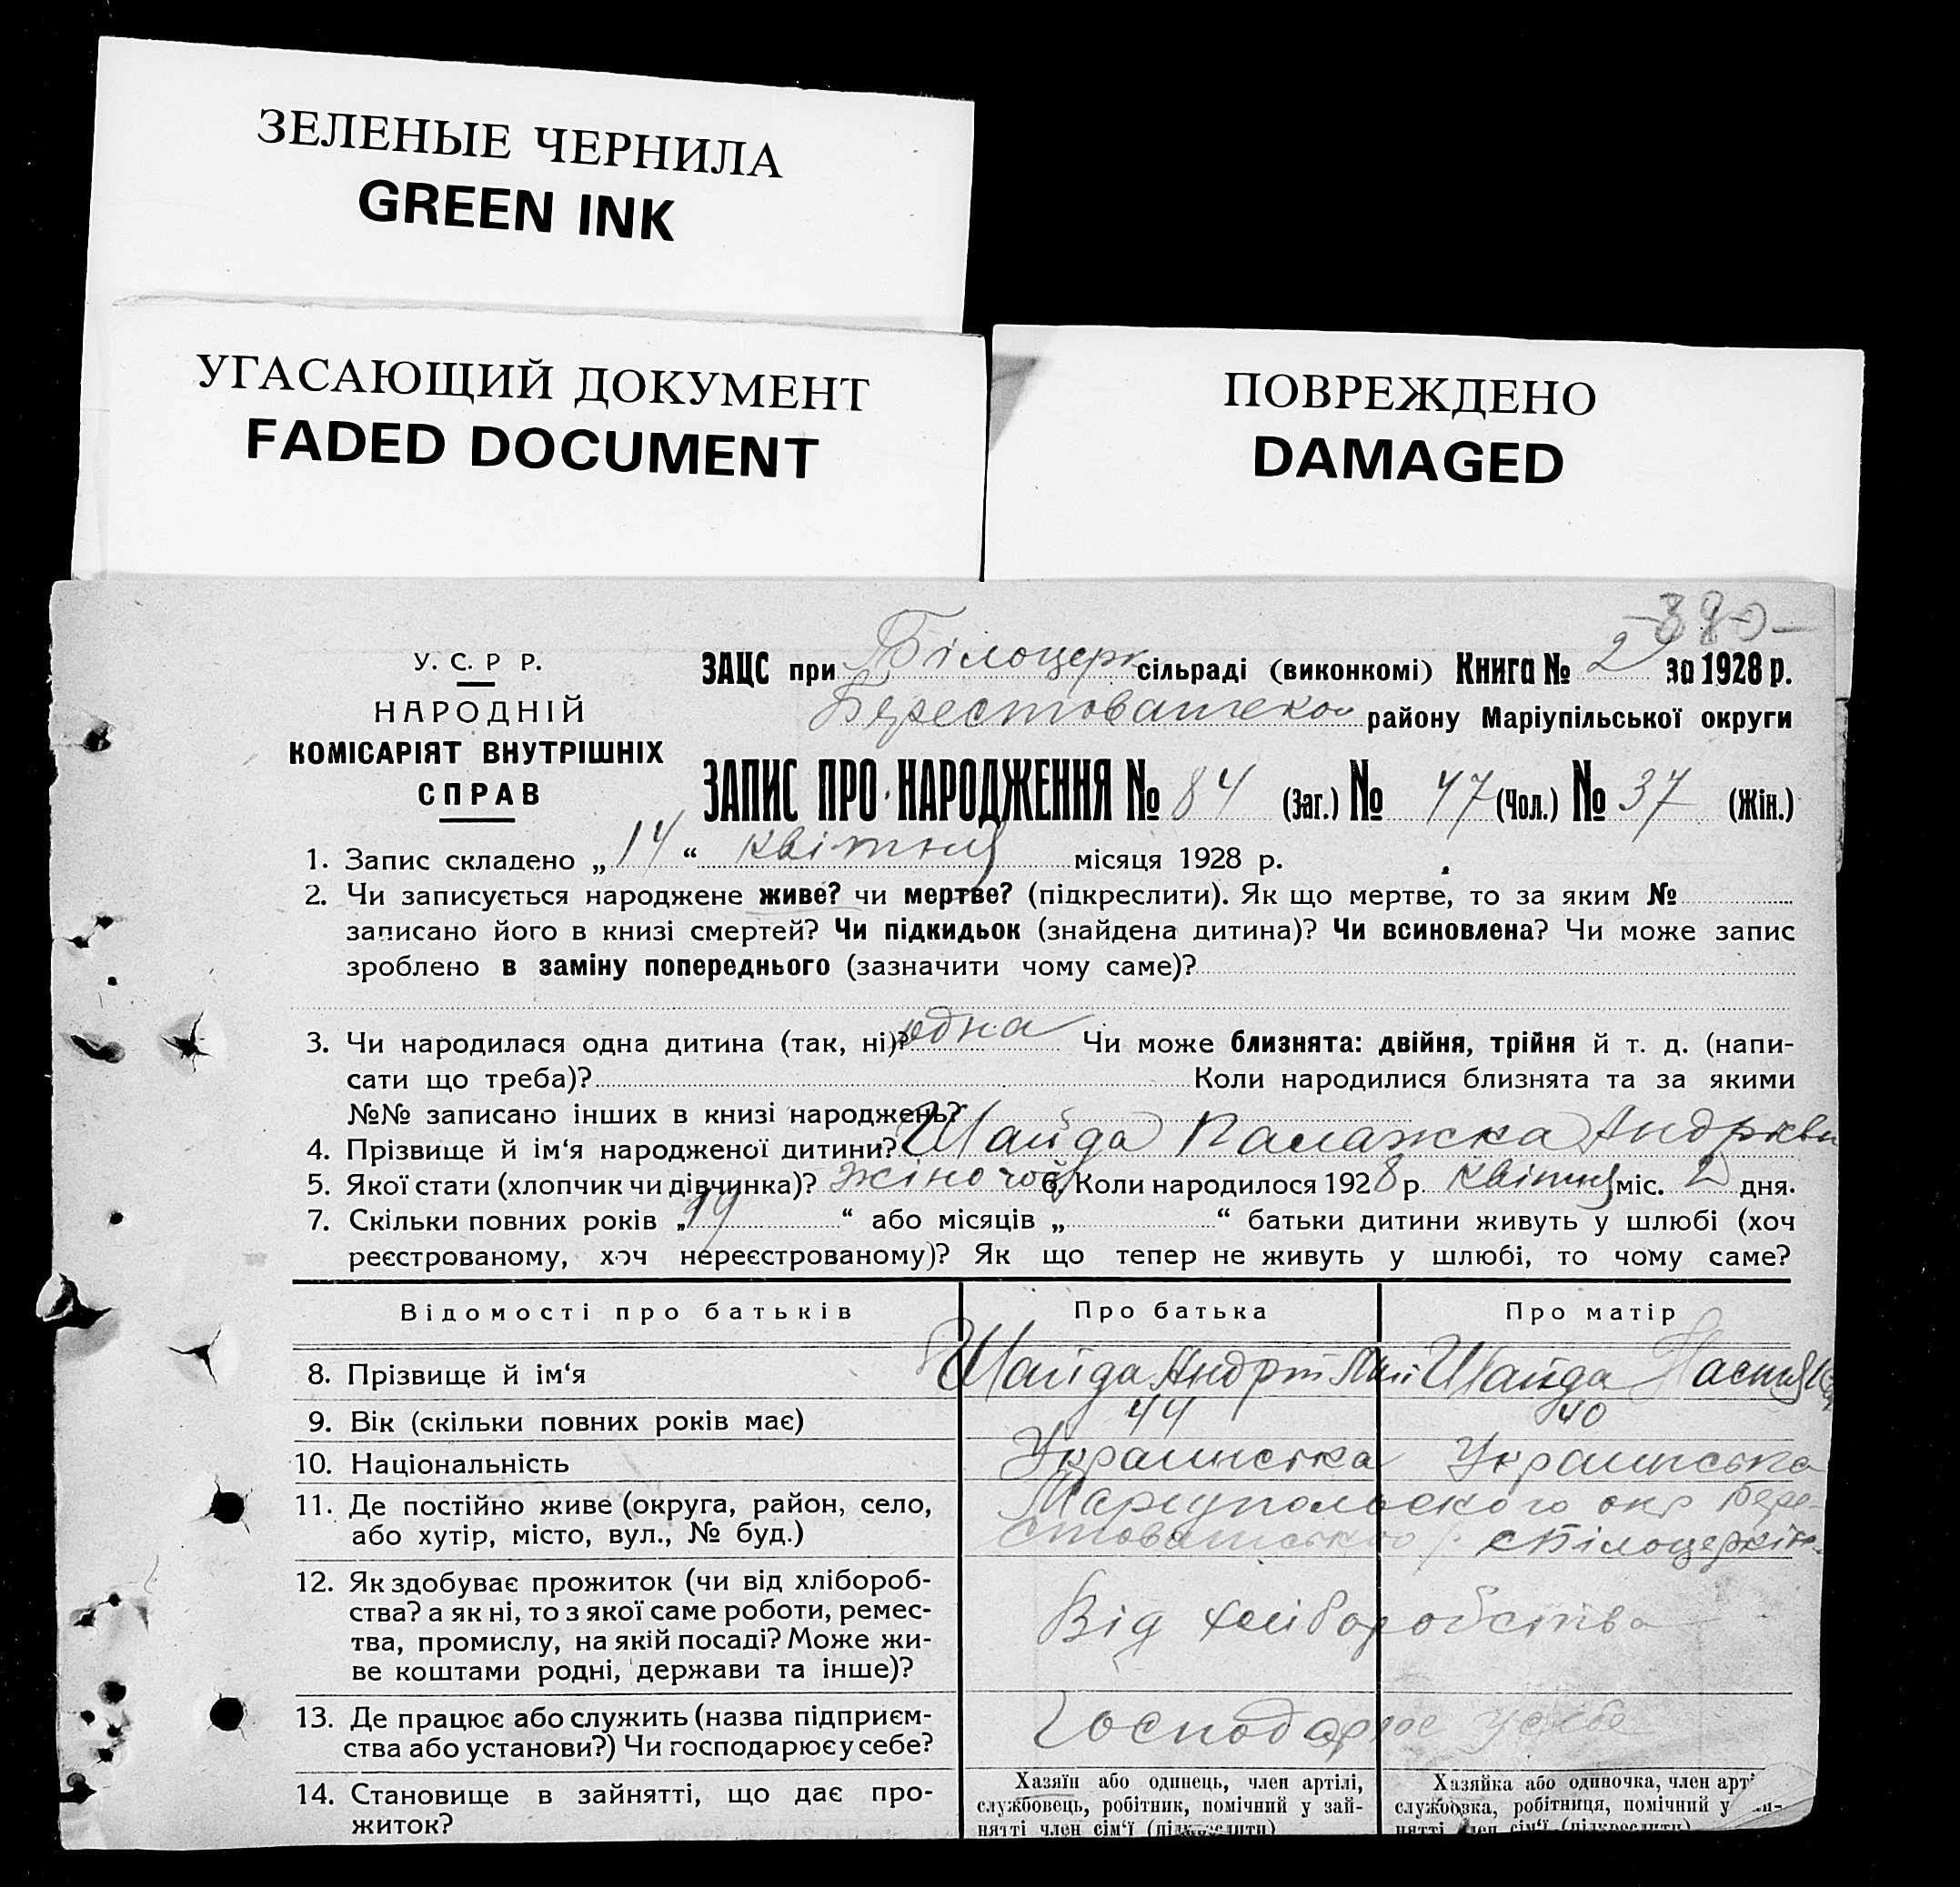 ЗЕЛЕНЫЕ ЧЕРНИЛА
GREEN INK
УГАСАЮЩИЙ ДОКУМЕНТ
FADED DOCUMENT
ПОВРЕЖДЕНО
DAMAGED
-380-
У. С. Р Р.
НАРОДНІЙ
КОМІСАРІЯТ ВНУТРІШНІХ
СПРАВ
ЗАЦС при Білоцерк сільраді (виконкомі) Книга № 2 за 1928 р.
Берестоватсько району Маріупільської округи
ЗАПИС ПРО НАРОДЖЕННЯ № 84 (Заг.) № 47 (Чол.) № 37 (Жін.)
1. Запис складено „ 14 “ квітня місяця 1928 р.
2. Чи записується народжене живе? чи мертве? (підкреслити). Як що мертве, то за яким №
записано його в книзі смертей? Чи підкидьок (знайдена дитина)? Чи всиновлена? Чи може запис
зроблено в заміну попереднього (зазначити чому саме)?
3. Чи народилася одна дитина (так, ні)? одна Чи може близнята: двійня, трійня й т. д. (напи-
сати що треба)? Коли народилися близнята та за якими
№№ записано інших в книзі народжень?
4. Прізвище й ім‘я народженої дитини? Шайда Палажка Андріївн
5. Якої стати (хлопчик чи дівчинка)? жіночой 6. Коли народилося 1928 р. квітня міс. 2 дня.
7. Скільки повних років „ 19 “ або місяців „ “ батьки дитини живуть у шлюбі (хоч
реєстрованому, хоч нереєстрованому)? Як що тепер не живуть у шлюбі, то чому саме?
Відомості про батьків Про батька Про матір
8. Прізвище й ім‘я Шайда Андрій Шайда Настя
9. Вік (скільки повних років має) 44 40
10. Національність Украинська Украинська
11. Де постійно живе (округа, район, село, Мариупольского окр Бере-
або хутір, місто, вул., № буд.) стоватського р. с Білоцерків
12. Як здобуває прожиток (чи від хлібороб-
ства? а як ні, то з якої саме роботи, ремес- Від хліборобства
тва, промислу, на якій посаді? Може жи-
ве коштами родні, держави та інше)?
13. Де працює або служить (назва підприєм- Господарює у себе
ства або установи?) Чи господарює у себе?
14. Становище в зайнятті, що дає про- Хазяїн або одинець, член артілі, Хазяйка або одиночка, член арт
житок? службовець, робітник, помічний у зай- службовка, робітниця, помічний у
нятті член сім‘ї (підкреслити) нятті член сім‘ї (підкреслити)